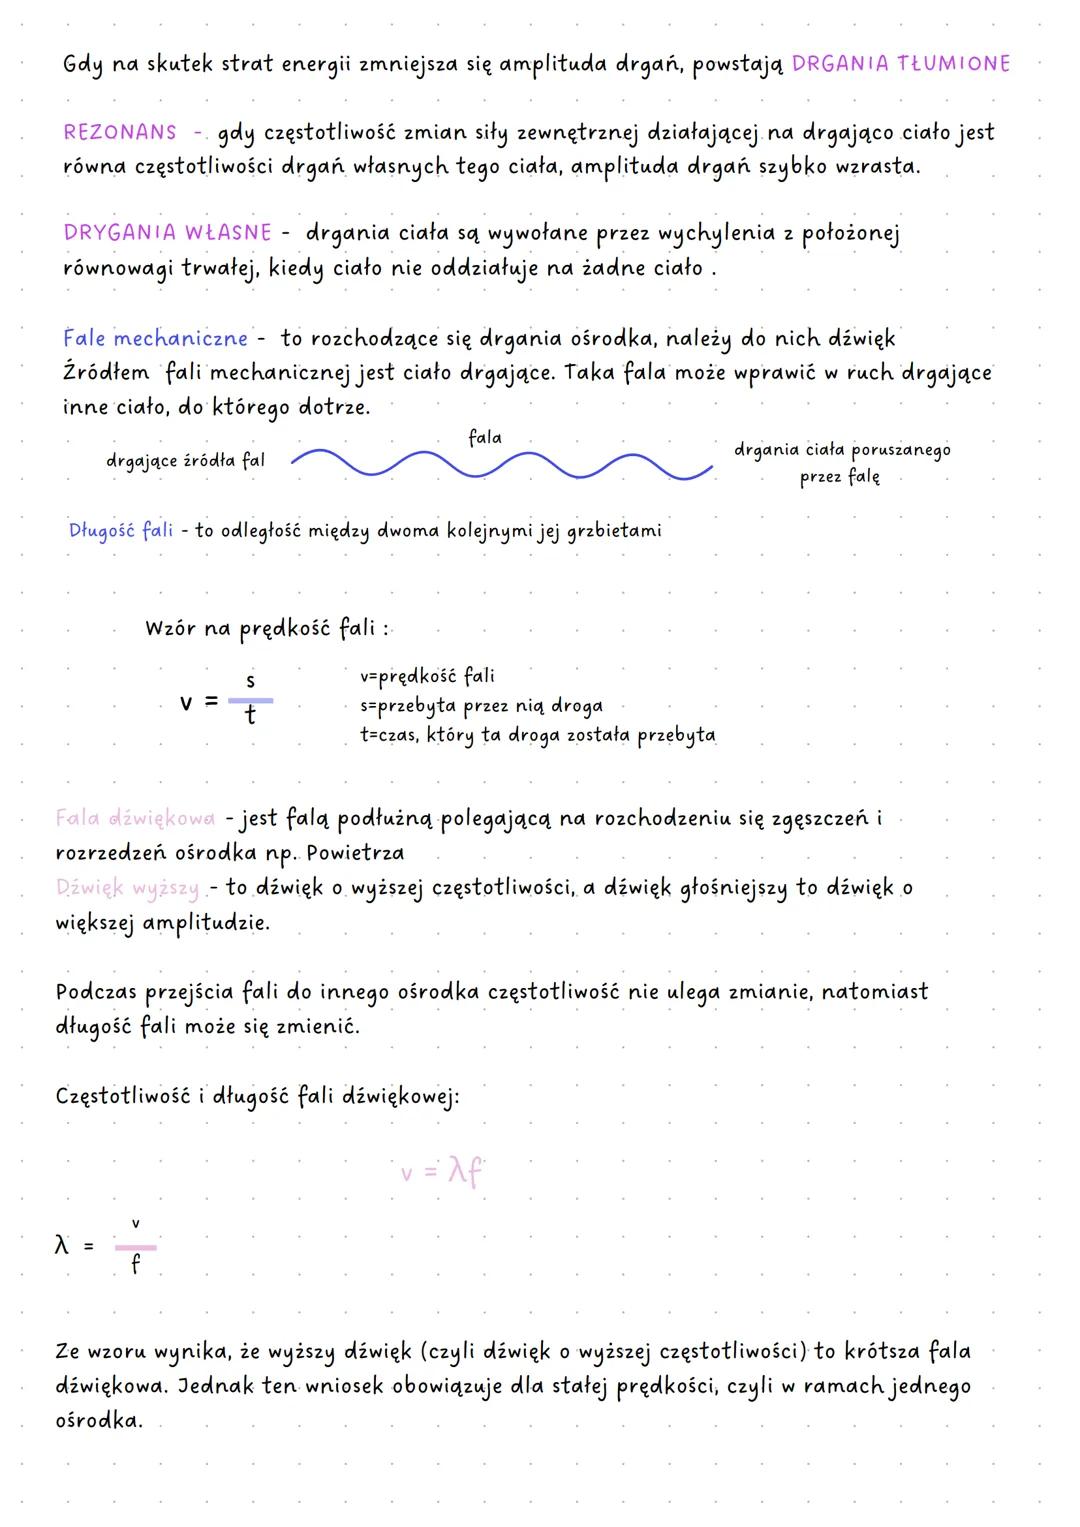 Gdy na skutek strat energii zmniejsza się amplituda drgań, powstają DRGANIA TŁUMIONE
REZONANS - gdy częstotliwość zmian siły zewnętrznej działającej na drgająco ciało jest
równa częstotliwości drgań własnych tego ciała, amplituda drgań szybko wzrasta.
DRYGANIA WŁASNE - drgania ciała są wywołane przez wychylenia z położonej
równowagi trwałej, kiedy ciało nie oddziałuje na żadne ciało .
Fale mechaniczne - to rozchodzące się drgania ośrodka, należy do nich dźwięk
Źródłem fali mechanicznej jest ciało drgające. Taka fala może wprawić w ruch drgające
inne ciało, do którego dotrze.
drgające źródła fal
fala
drgania ciała poruszanego
przez falę
Długość fali - to odległość między dwoma kolejnymi jej grzbietami
Wzór na prędkość fali :
v = s/t
v=prędkość fali
s=przebyta przez nią droga
t=czas, który ta droga została przebyta
Fala dźwiękowa - jest falą podłużną polegającą na rozchodzeniu się zgęszczeń i
rozrzedzeń ośrodka np. Powietrza
Dźwięk wyższy - to dźwięk o wyższej częstotliwości, a dźwięk głośniejszy to dźwięk o
większej amplitudzie.
Podczas przejścia fali do innego ośrodka częstotliwość nie ulega zmianie, natomiast
długość fali może się zmienić.
Częstotliwość i długość fali dźwiękowej:
v = λf
λ = v/f
Ze wzoru wynika, że wyższy dźwięk (czyli dźwięk o wyższej częstotliwości) to krótsza fala
dźwiękowa. Jednak ten wniosek obowiązuje dla stałej prędkości, czyli w ramach jednego
ośrodka.